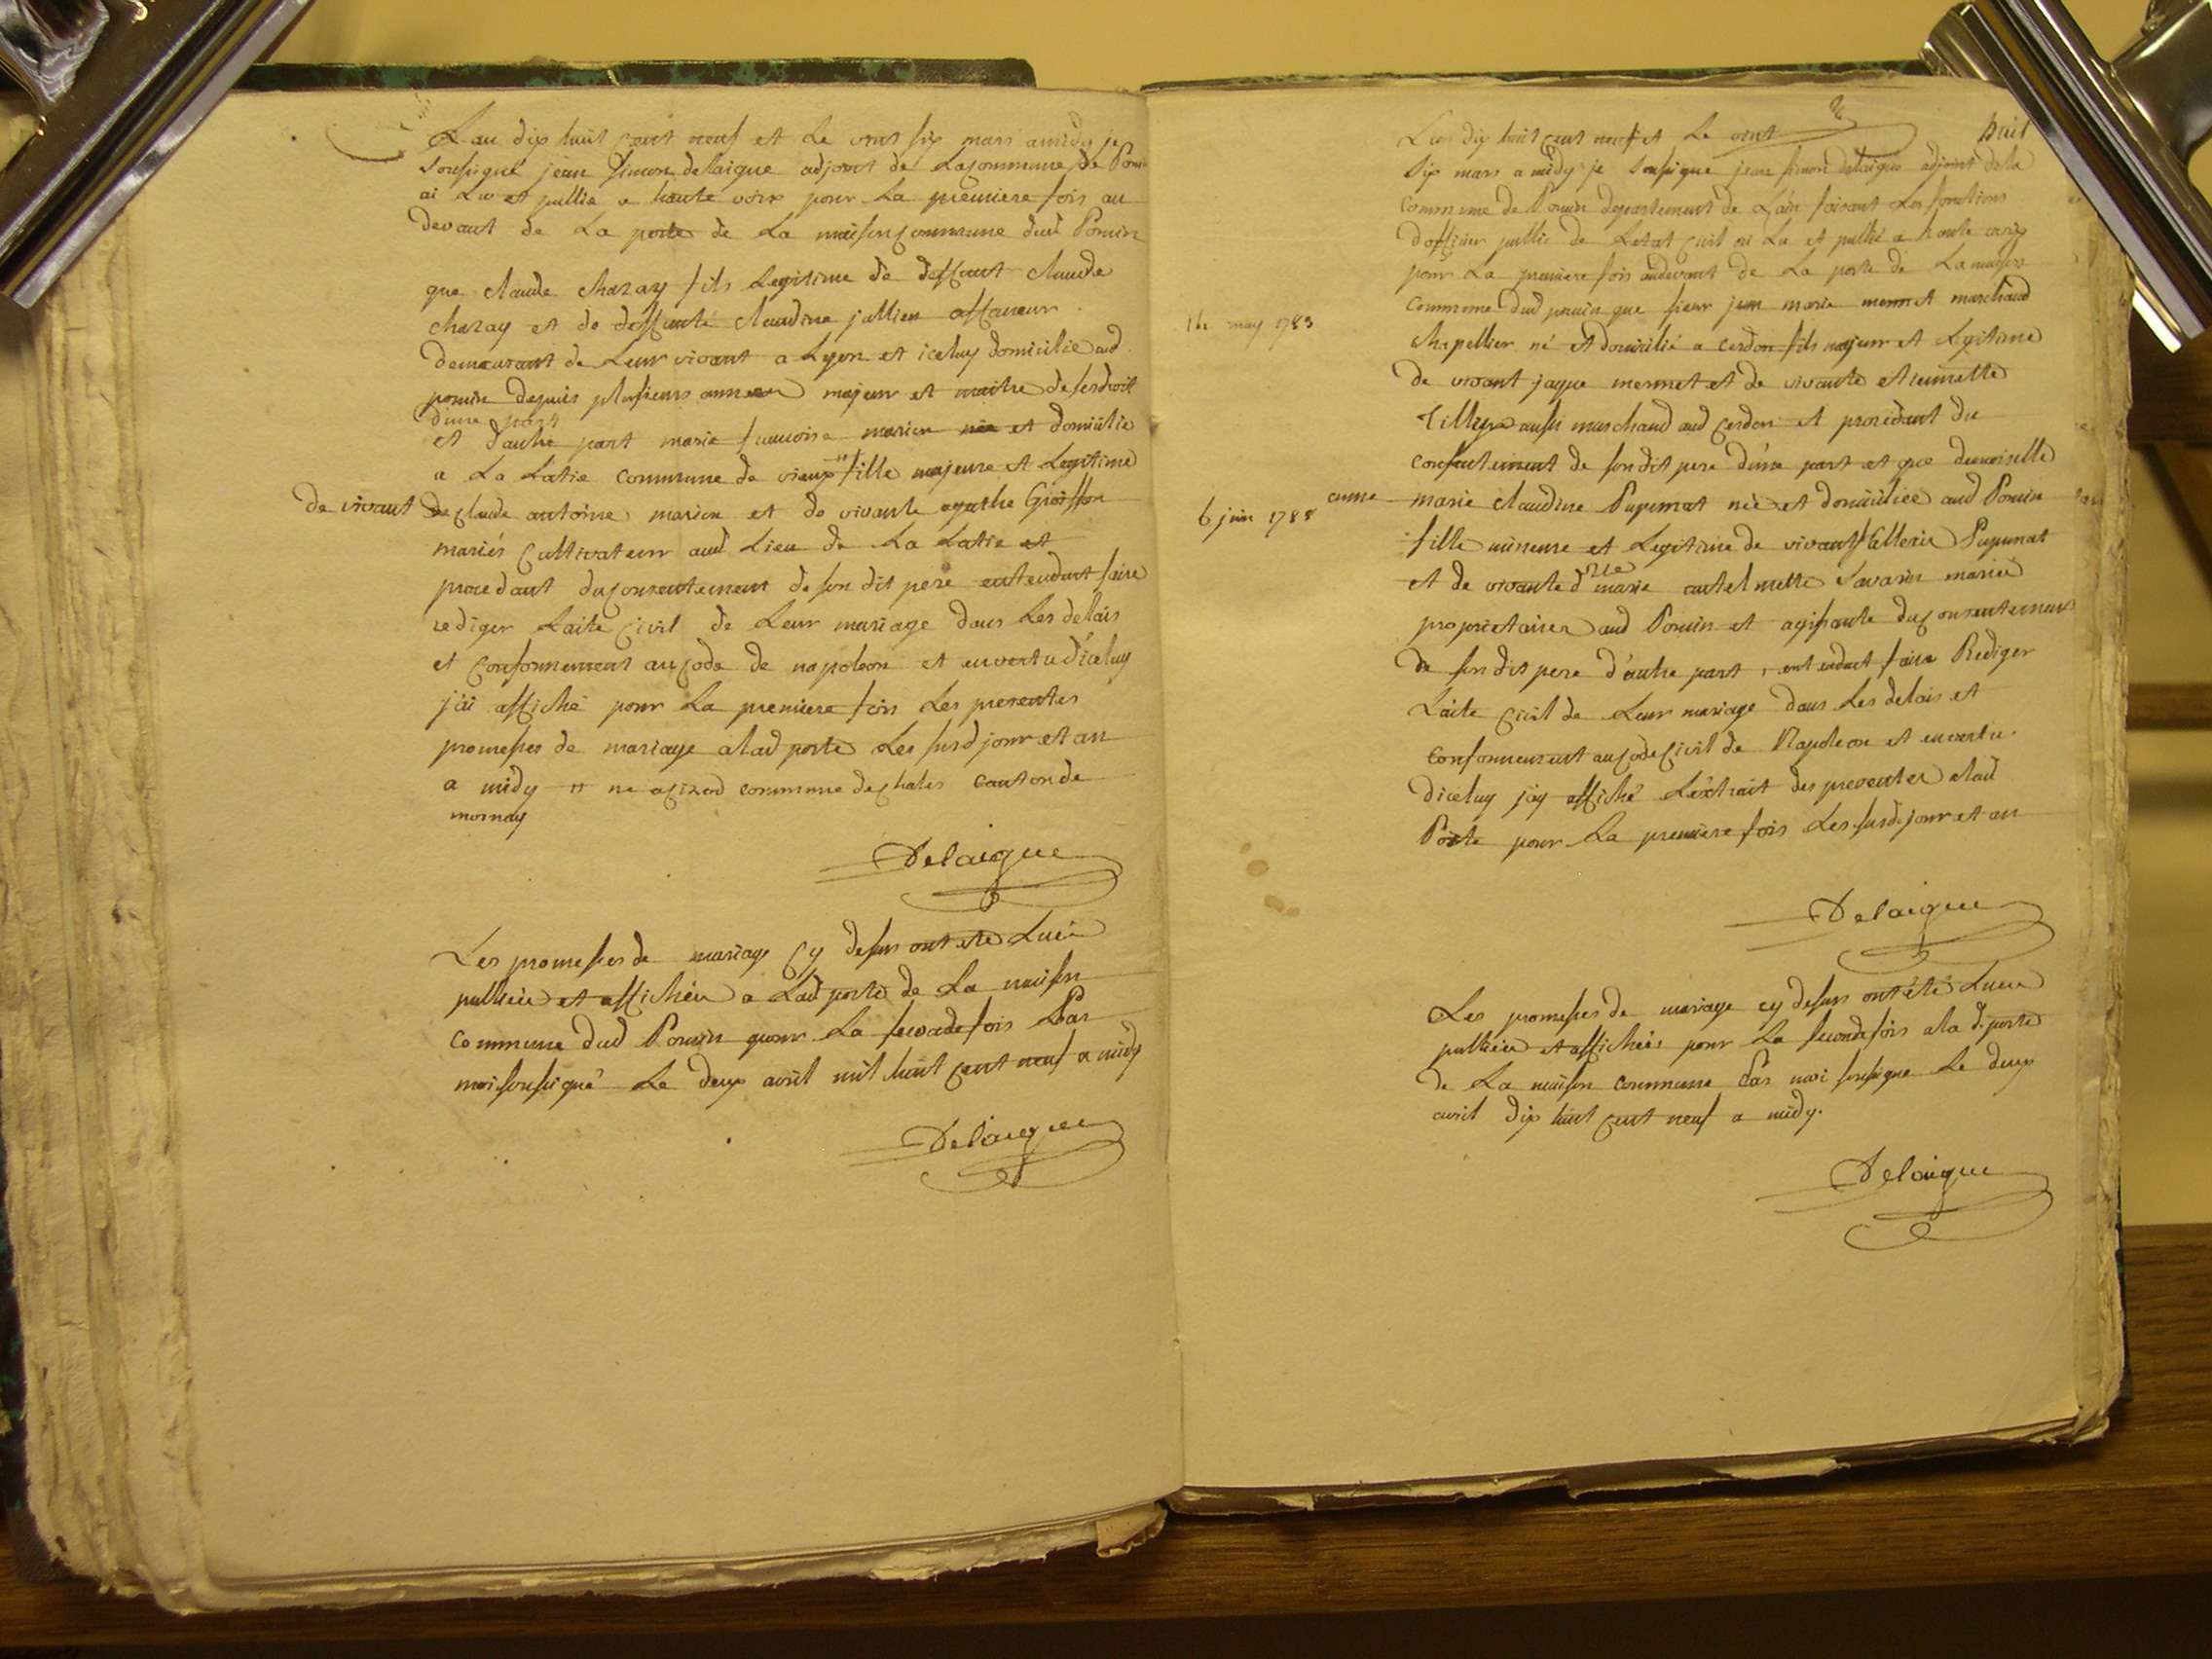 L'an dix huit cent neuf et le vint six mars a midy je
soussigné jean simon delaigue adjoint de la commune de Poncin
ai lu et publié a haute voix pour la premiere fois au
devant de la porte de la maison commune dud Poncin
que claude chazay fils legitime de deffunt claude
chazay et de deffunte claudine jullien affaneur
demeurant de leur vivant a Lyon et iceluy domicilié aud
poncin depuis plusieurs années majeur et maitre de ses droit
d'une part
et d'autre part marie francoise marion née et domiciliée
a la Latie commune de vieux " fille majeure et legitime
de vivant de claude antoine marion et de vivante agathe
mariés cultivateurs aud lieu de la Latie et
procedant du consentement de son dit pere entendant faire
rediger l'acte civil de leur mariage dans les delais
et conformement au code de napoleon et en vertu d'iceluy
j'ai affiché pour la premiere fois les presentes
promesses de mariage a lad porte les susd jour et an
a midy " commune de chales canton de
mornay
Delaigue
Les promesses de mariage cy dessus ont eté luës
publiées et affichées a lad porte de la maison
commune dud Poncin pour la seconde fois Par
moi soussigné le deux avril mil huit cent neuf a midy
Delaigue
huit
L'an dix huit cent neuf et le vint
six mars a midy je soussigné jean simon delaigue adjoint de la
commune de Poncin departement de l'ain faisant les fonctions
d'officier public de l'etat civil ai lu et publié a haute voix
pour la premiere fois au devant de la porte de la maison
commune dud poncin que sieur jean marie mermet marchand
14 may 1783
chapellier né et domicilié a cerdon fils majeur et legitime
de vivant jaque mermet et de vivante etiennette
aussi marchand aud cerdon et procedant du
consentement de son dit pere d'une part et que demoiselle
6 juin 1788
anne marie claudine Pupunat née et domiciliée aud Poncin
fille mineure et legitime de vivant Pupunat
et de vivante d marie antelmette Savarin mariés
proprietaires aud Poncin et agissante du consentement
de son dit pere d'autre part, entendant faire Rediger
l'acte civil de leur mariage dans les delais et
conformement au code civil de Napoleon et en vertu
d'iceluy j'ay affiché l'extrait des presentes a lad
Porte pour la premiere fois les susd jour et an
Delaigue
Les promesses de mariage cy dessus ont été luës
publiées et affichées pour la seconde fois a la d. porte
de la maison commune Par moi soussigné le deux
avril dix huit cent neuf a midy.
Delaigue